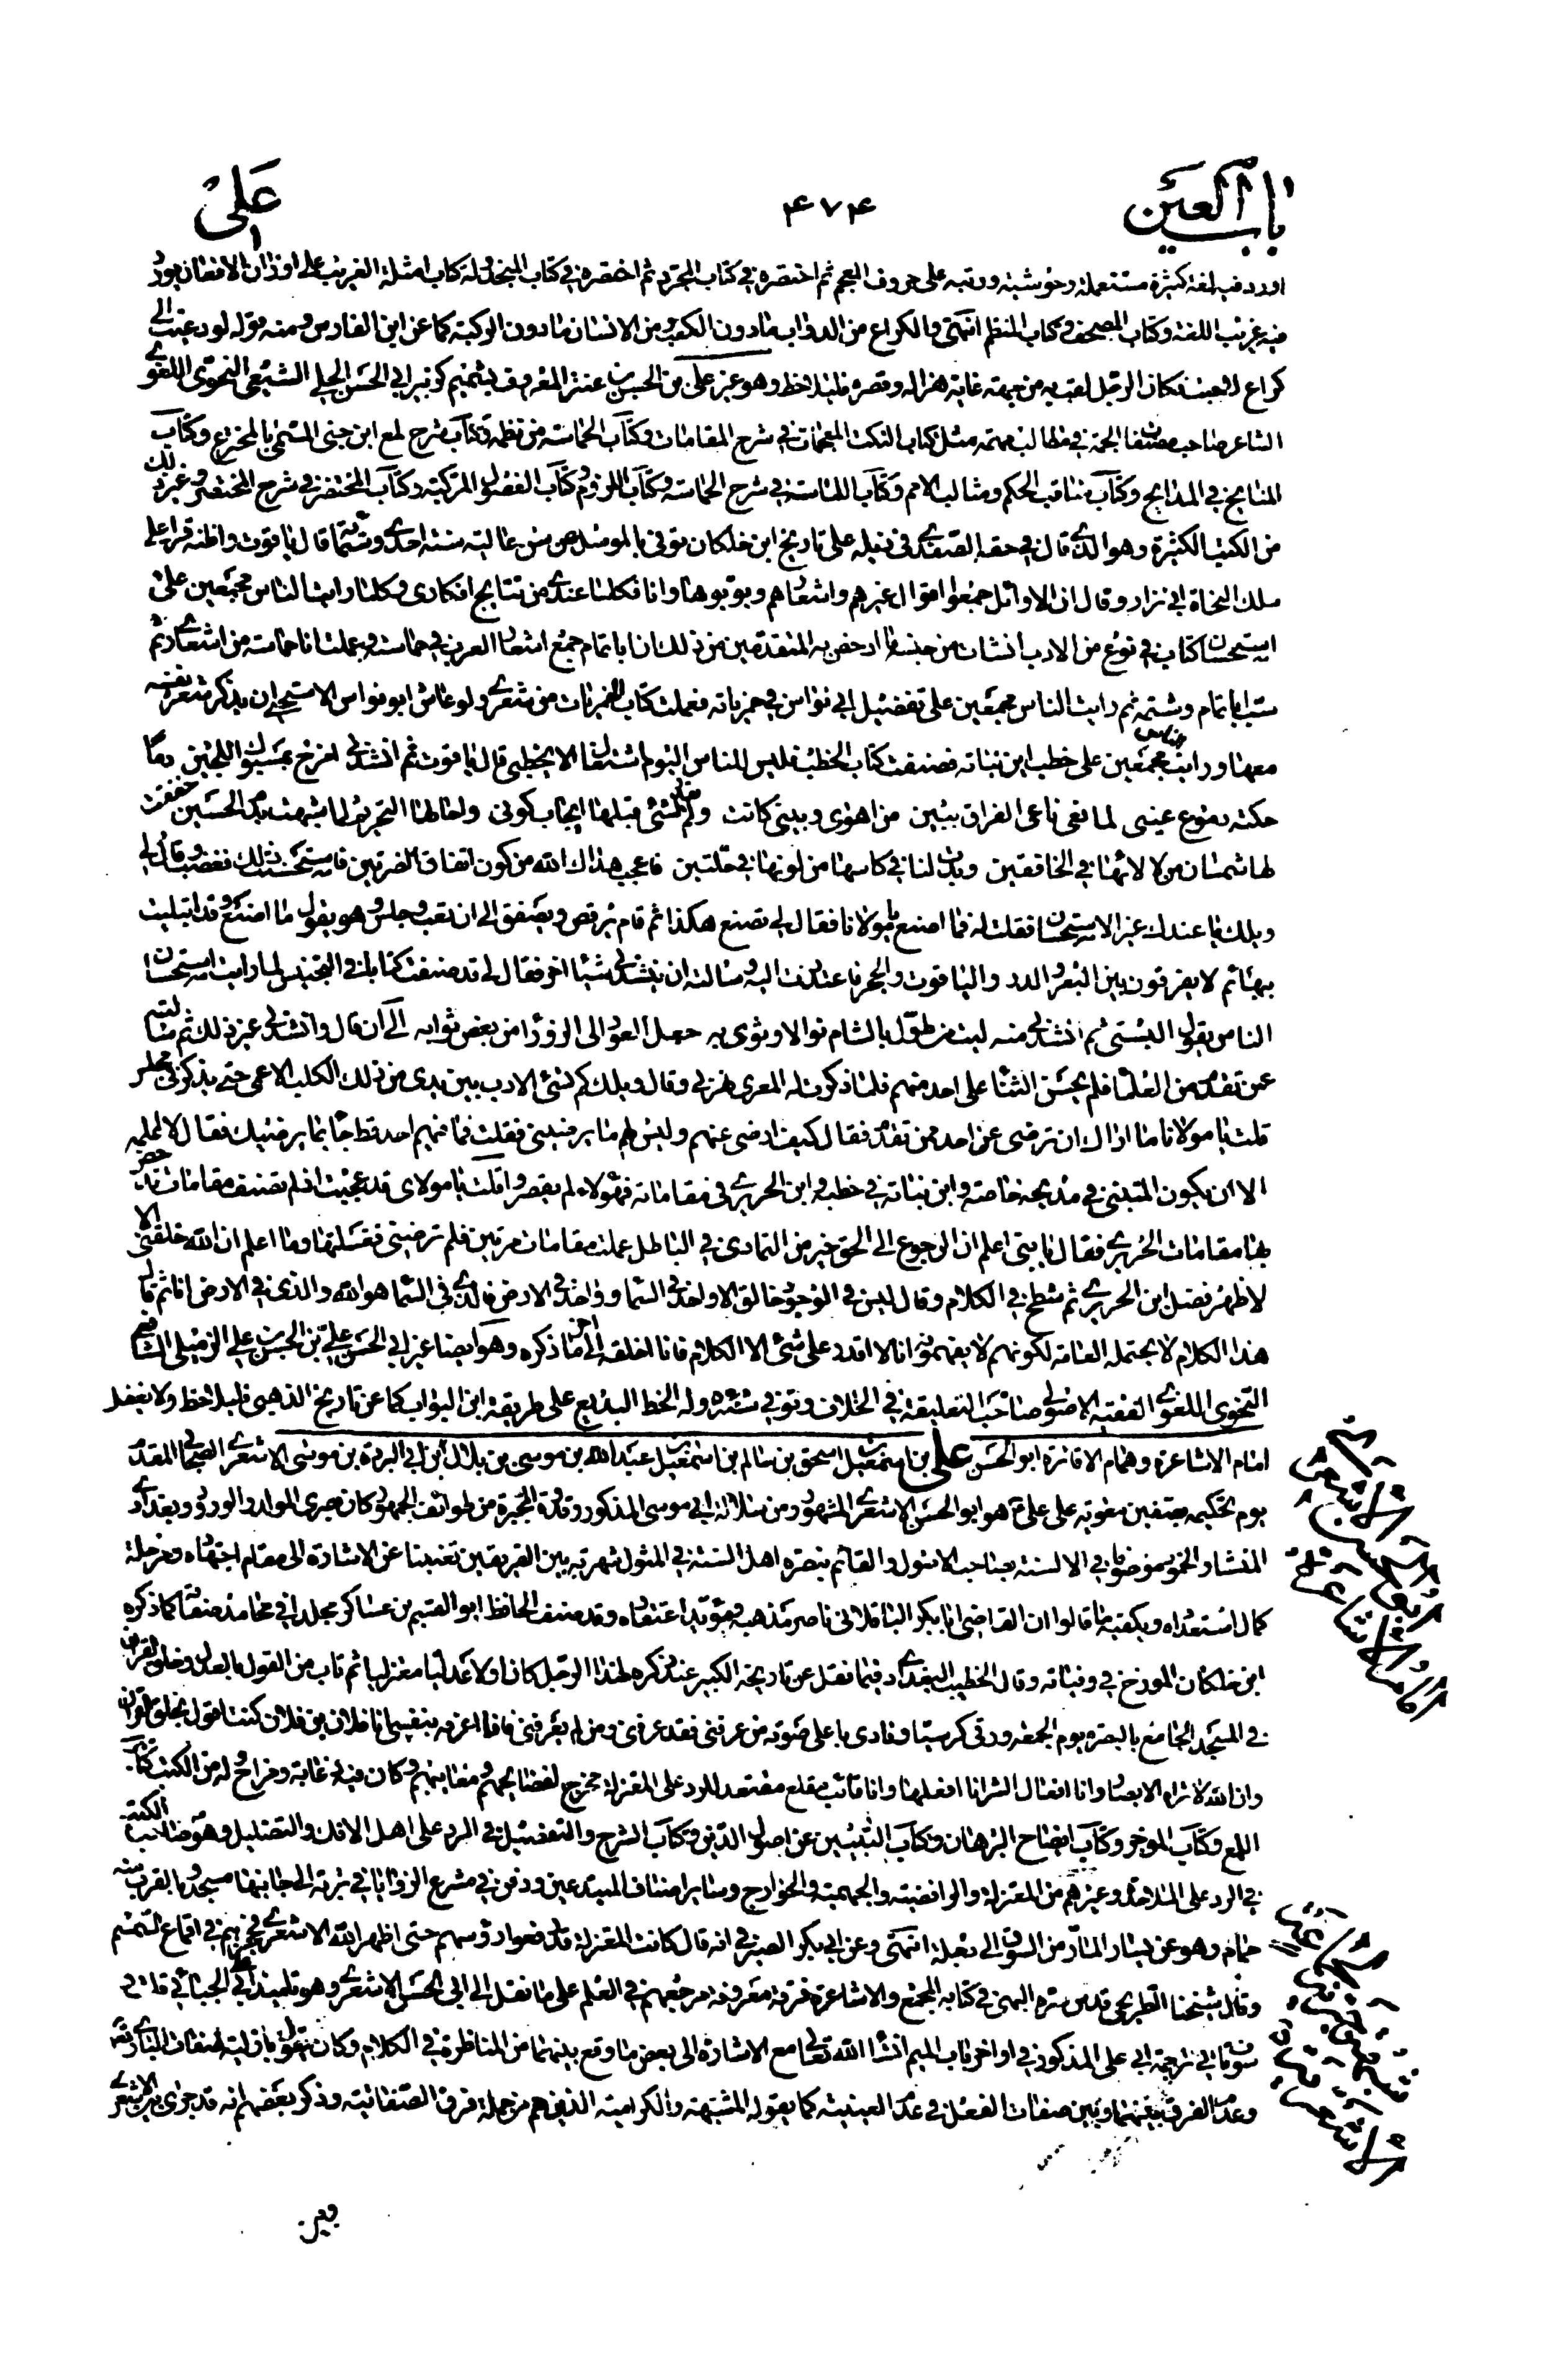 باب العين
۴۷۴
على
اورد فيه لغة كثيرة مستعملة وحوشية ورتبه على حروف المعجم ثم اختصره في كتاب المجرد ثم اختصره في كتاب المنجد وله كتاب امثلة الغريب على اوزان الافعال اورد
فيه غريب اللغة وكتاب المصحف وكتاب المنظم انتهى والكراع من الدواب مادون الكعب ومن الانسان مادون الركبة كما عن ابن الفارس ومنه قوله لو دعيت الى
كراع لاجبت فكان الرجل لقب به من جهة غاية هزاله وقصره فليلاحظ وهو غير على بن الحسن بن عنتر المعروف بشميم كزبير ابي الحسن الحلي الشيعي النحوى اللغوى
الشاعر صاحب مصنفات الجمة في مطالب مهمة مثل كتاب النكت المعجمات في شرح المقامات وكتاب الحماسة من نظمه وكتاب شرح لمع ابن جنى المسمى بالمخترع وكتاب
المنايح في المدايح وكتاب مناقب الحكم ومثالب الامم وكتاب اللماسة في شرح الحماسة وكتاب اللزوم وكتاب الفصول المركبة وكتاب المختصر في شرح المختصر وغير ذلك
من الكتب الكثيرة وهو الذي قال في حقه الصفدي في ذيله على تاريخ ابن خلكان توفي بالموصل عن سن عالية سنة احدى وستمائة قال ياقوت واظنه قرا على
ملك النحاة ابي نزار وقال ان الاوائل جمعوا اقوال غيرهم واشعارهم وبوبوها وانا فكلما عندي من نتايج افكارى وكلما رايت الناس مجمعين على
استحسان كتاب في نوع من الادب انشات من جنسه ما ادحض به المتقدمين من ذلك ان اباتمام جمع اشعار العرب في حماسته وعملت انا حماسة من اشعاري ثم
سب اباتمام وشتمه ثم رايت الناس مجمعين على تفضيل ابي نواس في خمرياته فعملت كتاب الخمريات من شعري ولو عاش ابو نواس لاستحيى ان يذكر شعر نفسه
معها ورايت الناس مجمعين على خطب ابن نباته فصنفت كتاب الخطب فليس للناس اليوم اشتغال الا بخطبى قال ياقوت ثم انشدني امزج بمسبوك اللجين دما
حكته دموع عينى لما نعى ناعى الفراق ببين من اهوى وبينى كانت ولم يقدر لشئ قبلها ايجاب كونى واحالها التحريم لما شبهت بدم الحسين خفقت
لها شمسان من لالائها في الخافقين وبدت لنا في كاسها من لونها في حلتين فاعجب هداك الله من كون اتفاق الضرتين فاستحسنت ذلك فغضب وقال لي
ويلك ما عندك غير الاستحسان فقلت له فما اصنع يا مولانا فقال لي تصنع هكذا ثم قام يرقص ويصفق الى ان تعب وجلس وهو يقول ما اصنع وقد ابتليت
ببهائم لا يفرقون بين البعر والدر والياقوت والحجر فاعتذرت اليه وسالته ان ينشدني شيئا اخر فقال لي قد صنفت كتابا في التجنيس لما رايت استحسان
الناس بقول البستى ثم انشدني منه ليت من طول بالشام نواه وثوى به جعل العود الى الزوراء من بعض ثوابه الى ان قال وانشدني غير ذلك ثم سالته
عمن تقدم من العلماء فلم يحسن الثناء على احد منهم فلما ذكرت له المعري نهرني وقال ويلك كم تسئ الادب بين يدى من ذلك الكلب الاعمى حتى يذكر في مجلس
قلت يا مولانا ما اراك ان ترضى عن احد ممن تقدم فقال كيف ارضى عنهم وليس لهم ما يرضينى فقلت فما فيهم احد قط جاء بما يرضيك فقال لا اعلمه
الا ان يكون المتنبى في مديحه خاصة وابن نباتة في خطبه وابن الحريري في مقاماته فهؤلاء لم يقصروا قلت يا مولاى قد عجبت اذ لم تصنف مقامات تدحض
بها مقامات الحريري فقال يا بنى اعلم ان الرجوع الى الحق خير من التمادى في الباطل عملت مقامات مرتين فلم ترضنى فغسلتها وما اعلم ان الله خلقنى الا
لاظهر فضل ابن الحريري ثم شطح في الكلام وقال ليس في الوجود خالق الا واحد في السماء وواحد في الارض فالذي في السماء هو الله والذى في الارض انا ثم قال
هذا الكلام لا يحتمله العامة لكونهم لا يفهمونه انا لا اقدر على شئ الا الكلام فانا اخلقه الى اخر ما ذكره وهو ايضا غير ابي الحسن علي بن الحسن بن علي الرميلي الشافعي
النحوى اللغوي الفقيه الاصولي صاحب التعليقة في الخلاف وتوفي سنة وله الخط البديع على طريقة ابن البواب كما عن تاريخ الذهبى فليلاحظ ولا يغفل
امام الاشاعرة وهمام الافاخرة ابو الحسن على بن اسمعيل بن اسحق بن سالم بن اسمعيل بن عبد الله بن موسى بن بلال بن ابي البردة بن موسى الاشعري الصحابي المقدم
يوم تحكيمه بصفين معوية على علي ع هو ابو الحسن الاشعري المشهور ومن سلالة ابي موسى المذكور وقادة المجبرة من طوائف الجمهور كان بصرى الموالد والورود وبغدادي
المنشا والخمود موضوعا في الالسنة بصاحب الاصول والقائم بنصرة اهل السنة في المثول شهرته بين الفريقين تغنينا عن الاشارة الى مقام اجتهاده ومرحلة
كمال استعداده ويكفيه ما قالوا ان القاضى ابا بكر الباقلانى ناصر مذهبه ومؤيد اعتقاده وقد صنف الحافظ ابو القسم بن عساكر مجلدا في محامد صفاته كما ذكره
ابن خلكان المورخ في وفياته وقال الخطيب البغدادي فيما نقل عن تاريخه الكبير عند ذكره لهذا الرجل كان اولا عدليا معتزليا ثم تاب من القول بالعدل وخلق القران
في المسجد الجامع بالبصرة يوم الجمعة ورقى كرسيا ونادى باعلى صوته من عرفنى فقد عرفنى ومن لم يعرفنى فانا اعرفه بنفسى انا فلان بن فلان كنت اقول بخلق القران
وان الله لا تراه الابصار وانا افعال الشر انا افعلها وانا تائب مقلع معتقد للرد على المعتزلة مخرج لفضايحهم ومعايبهم وكان فيه دعابة ومزاح وله من الكتب كتاب
اللمع وكتاب الموجز وكتاب ايضاح البرهان وكتاب التبيين عن اصول الدين وكتاب الشرح والتفصيل في الرد على اهل الافك والتضليل وهو صاحب الكتب
في الرد على الملاحدة وغيرهم من المعتزلة والرافضية والجهمية والخوارج وساير اصناف المبتدعين ودفن في مشرع الزوايا في تربة الى جانبها مسجد وبالقرب منه
حمام وهو عن يسار المار من السوق الى دجلة انتهى وعن ابي بكر الصيرفي انه قال كانت المعتزلة قد رفعوا رؤسهم حتى اظهر الله الاشعري فحجزهم في اقماع السمسم
وقال شيخنا الطريحى قدس سره البهى في كتابه المجمع والاشاعرة فرقة معروفة مرجعهم في العلم على ما نقل الى ابي الحسن الاشعري وهو تلميذ ابي علي الجبائي
سوقها في ترجمة ابي على المذكور في اواخر باب الميم انشاء الله تعالى مع الاشارة الى بعض ما وقع بينهما من المناظرة في الكلام وكان يقول بازلية صفات الباري تعالى
وعدم الفرق بينهما وبين صفات الفعل في عدم العينية كما يقوله المشبهة والكرامية الذين هم من جملة فرق الصفاتية وذكر بعضهم انه قد جرى بين الاشعري
وبين